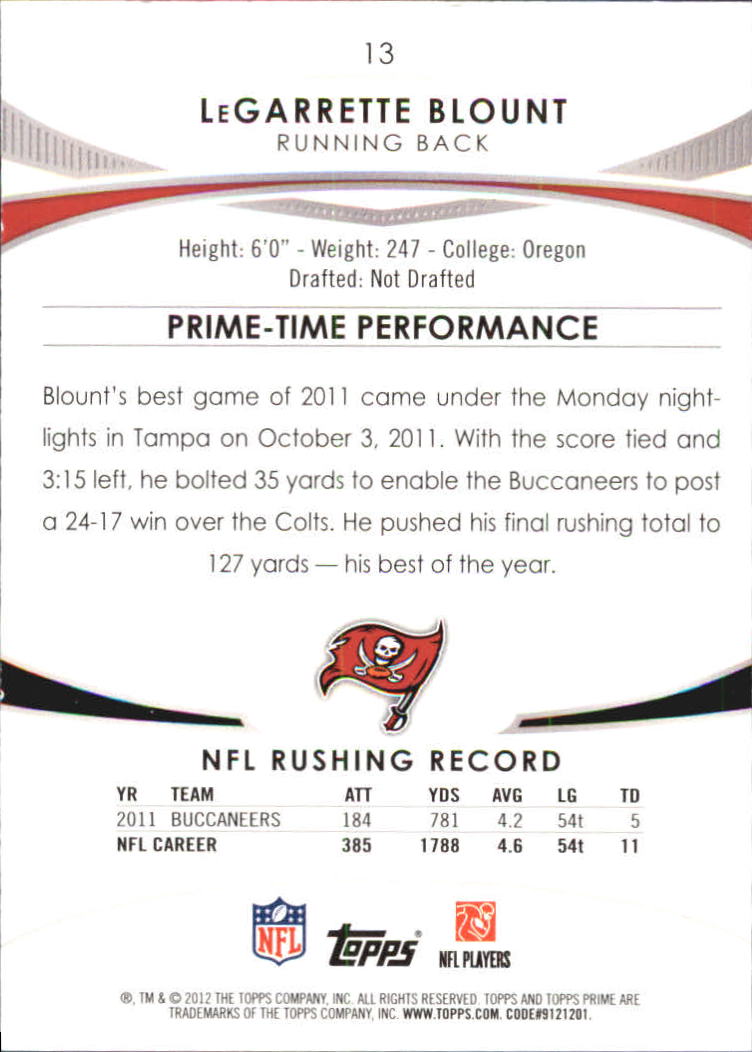 13
LeGARRETTE BLOUNT
RUNNING BACK
Height: 6'0" - Weight: 247 - College: Oregon
Drafted: Not Drafted
PRIME-TIME PERFORMANCE
Blount's best game of 2011 came under the Monday night-
lights in Tampa on October 3, 2011. With the score tied and
3:15 left, he bolted 35 yards to enable the Buccaneers to post
a 24-17 win over the Colts. He pushed his final rushing total to
127 yards — his best of the year.
NFL RUSHING RECORD
YR TEAM ATT YDS AVG LG TD
2011 BUCCANEERS 184 781 4.2 54t 5
NFL CAREER 385 1788 4.6 54t 11
NFL Topps® NFL PLAYERS
®, TM & © 2012 THE TOPPS COMPANY, INC. ALL RIGHTS RESERVED. TOPPS AND TOPPS PRIME ARE
TRADEMARKS OF THE TOPPS COMPANY, INC. WWW.TOPPS.COM. CODE#9121201.